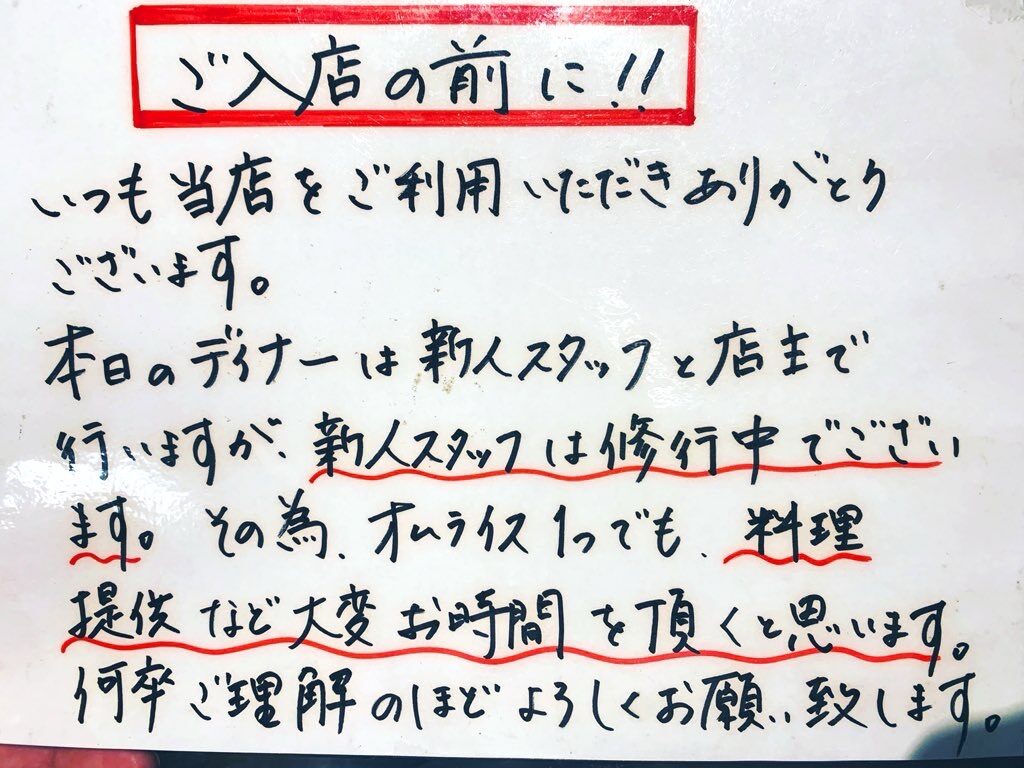 ご入店の前に!!
いつも当店をご利用いただきありがとう
ございます。
本日のディナーは新人スタッフと店主で
行いますが、新人スタッフは修行中でござい
ます。その為、オムライス1つでも、料理
提供など大変お時間を頂くと思います。
何卒ご理解のほどよろしくお願い致します。